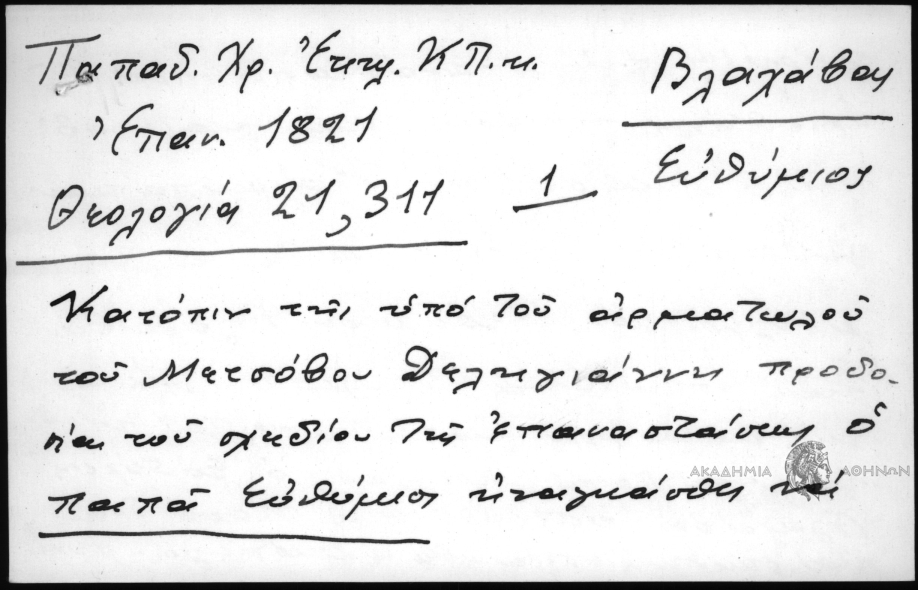 Παπαδ. Χρ. Ἐκκλ. ΚΠ. κ.
Ἐπαν. 1821
Θεολογία 21, 311
1
Βλαχάβας
Εὐθύμιος
Κατόπιν τῆς ὑπό τοῦ ἁρματωλοῦ
τοῦ Μετσόβου Δεληγιάννη προδο-
σίας τοῦ σχεδίου τῆς ἐπαναστάσεως ὁ
παπᾶ Εὐθύμιος ἠναγκάσθη νά
ΑΚΑΔΗΜΙΑ ΑΘΗΝΩΝ